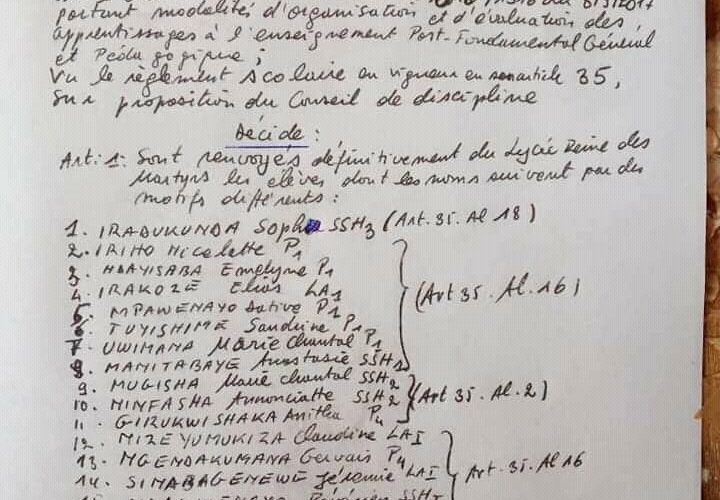 portant modalités d'organisation et d'évaluation des
apprentissages à l'enseignement Post-Fondamental Général
et Pédagogique ;
Vu le règlement scolaire en vigueur en son article 35,
Sur proposition du Conseil de discipline
Décide :
Art: 1: Sont renvoyés définitivement du Lycée Reine des
Martyrs les élèves dont les noms suivent par des
motifs différents :
1. IRADUKUNDA Sophie SSH3 (Art. 35. Al 18)
2. IRIHO Nicelatte P1
3. NDAYISABA Emelyne P1
4. IRAKOZE Elias LA1
(Art 35. Al. 16)
5. MPAWENAYO Dative P1
6. TUYISHIME Sandrine P1
7. UWIMANA Marie Chantal P1
8. MANITABAYE Anastasie SSH1
9. MUGISHA Marie chantal SSH2
10. NINFASHA Annonciatte SSH2 (Art 35. Al. 2)
11. GIRUKWISHAKA Anitha P4
12. MIZEYUMUKIZA Claudine LAI
13. NGENDAKUMANA Gervais P4
14. SIMABAGENEWE Jérémie LAI Art. 35. Al 16